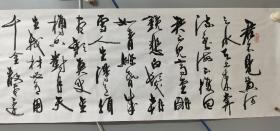 君不見黄河
之水天上来奔
流到海不復回
君不見高堂明
鏡悲白髮朝
如青絲暮成
雪人生得意
須盡歡莫使金
樽空對月天
生我材必有用
千金散盡還